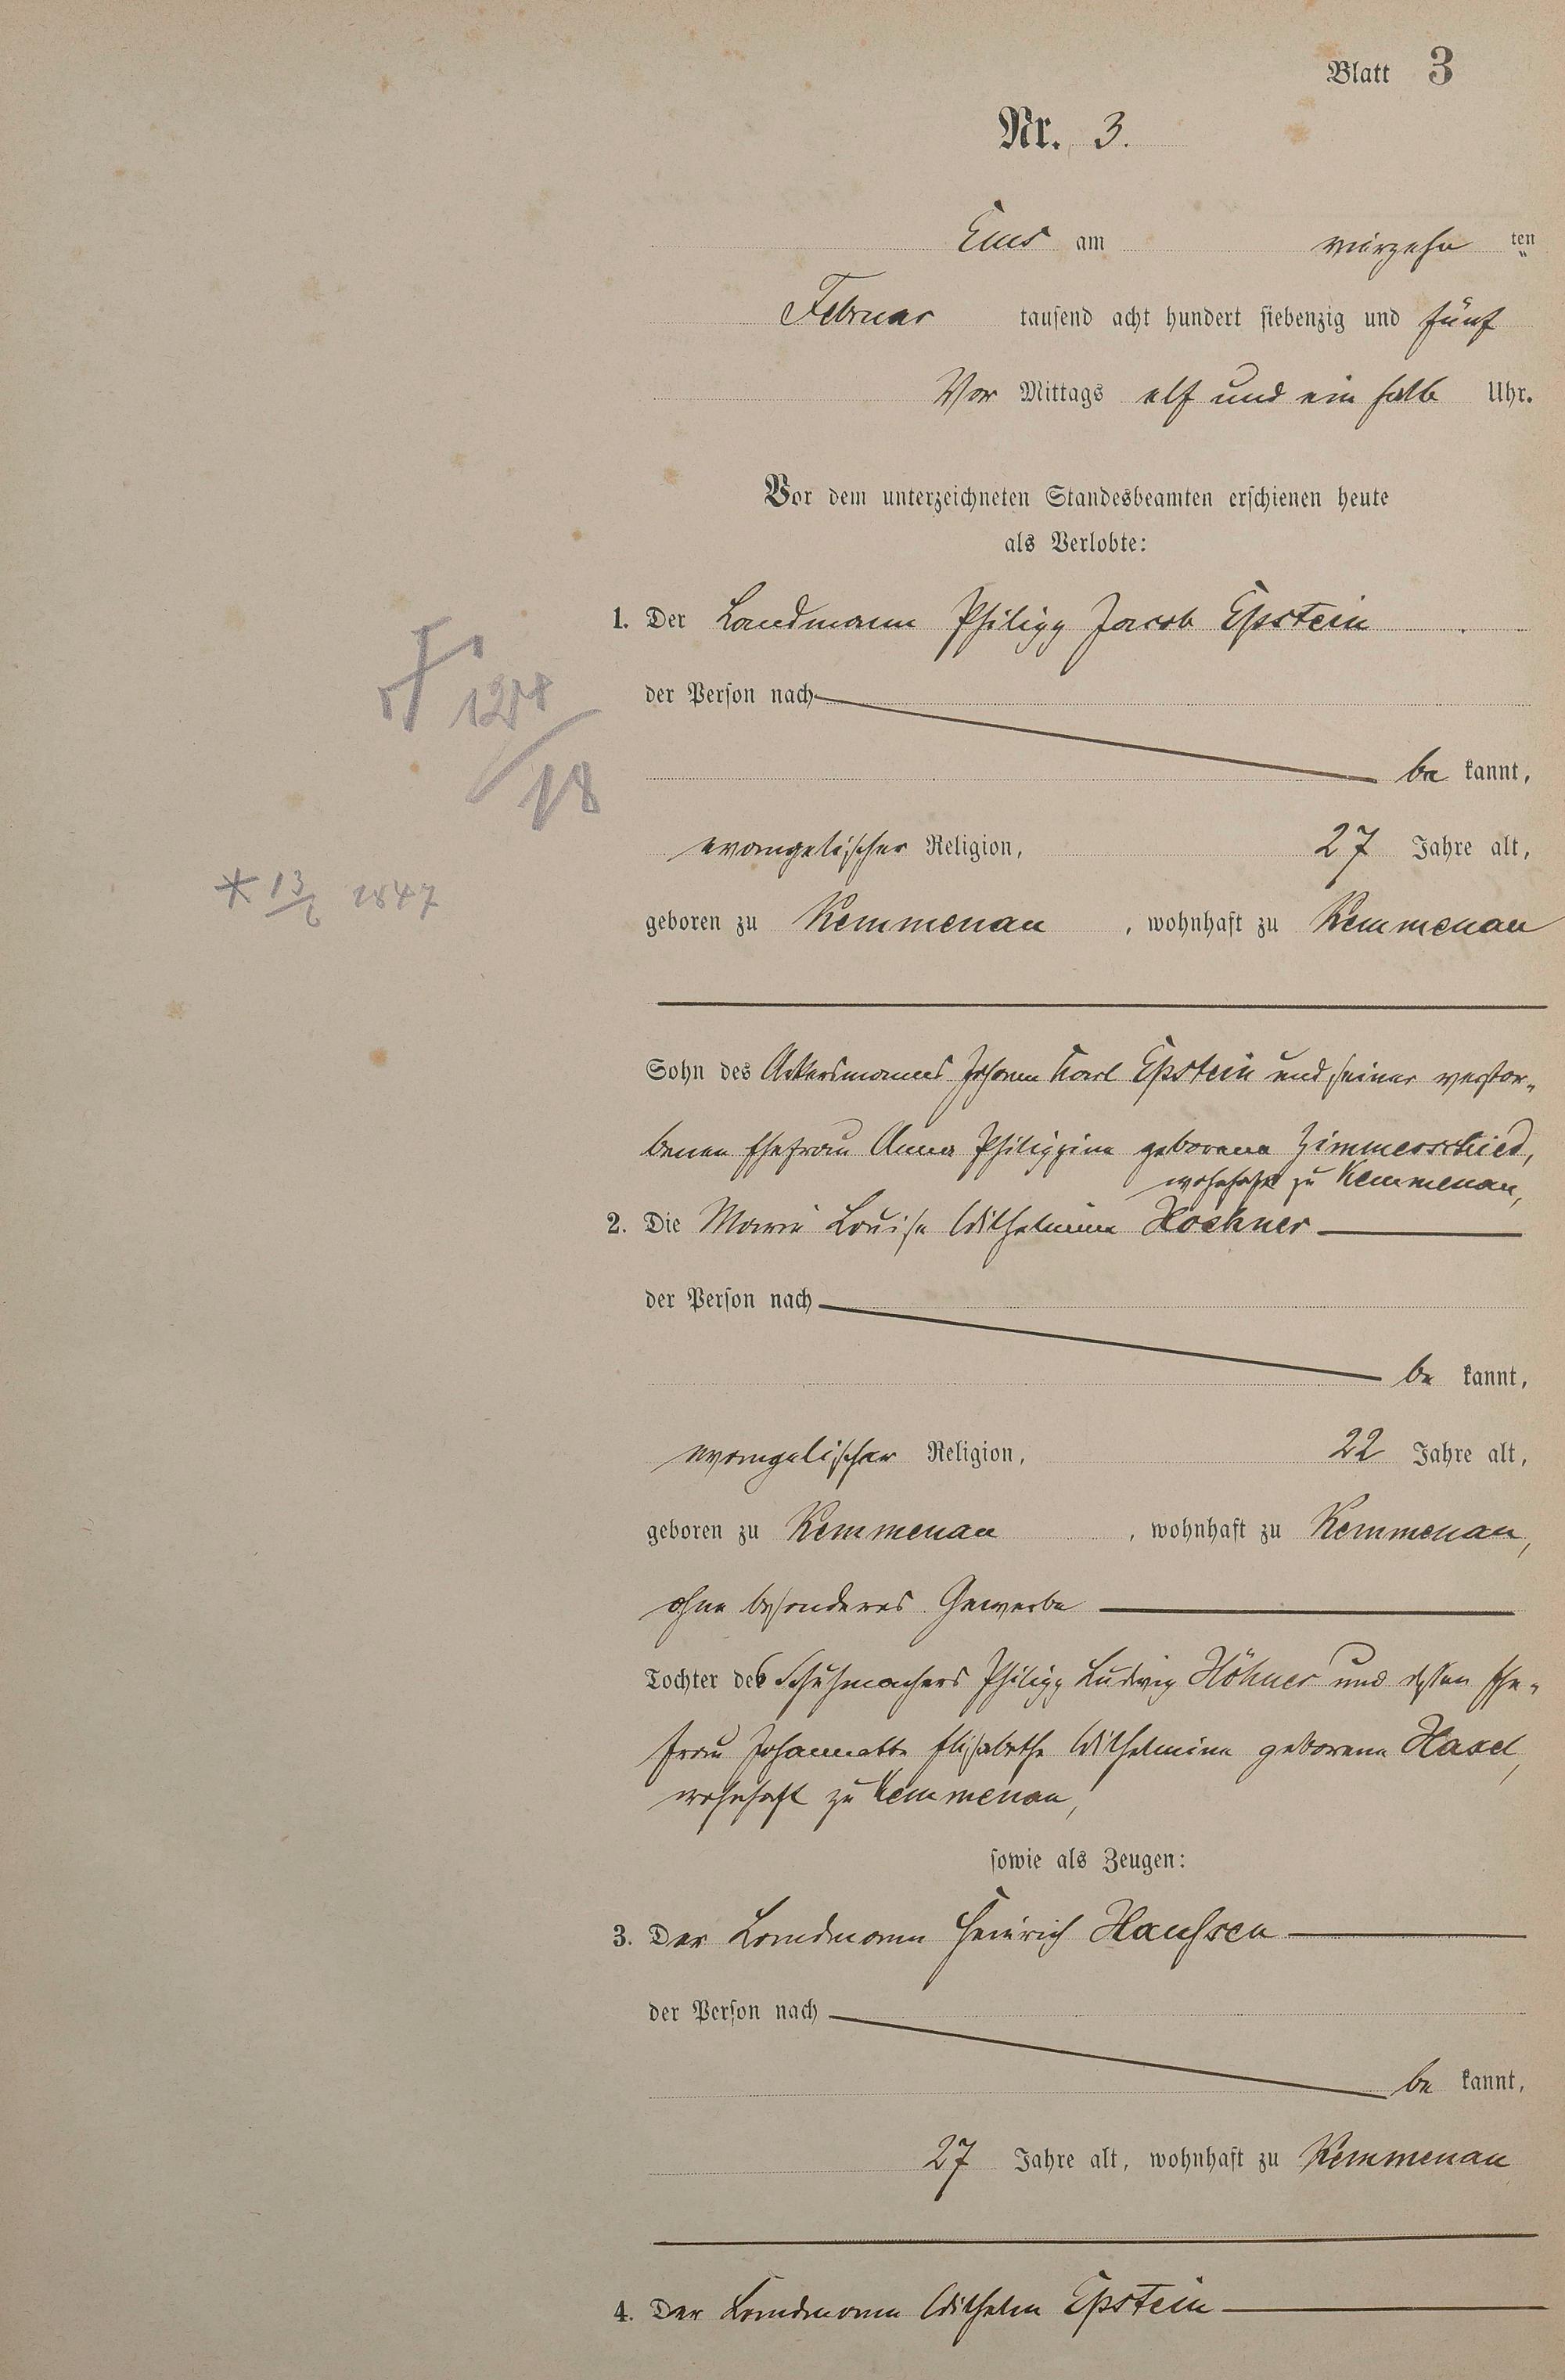 Blatt 3
Nr. 3.
Ems am vierzehn ten
Februar tausend acht hundert siebenzig und fünf
Vor Mittags elf und ein halb Uhr.
Vor dem unterzeichneten Standesbeamten erschienen heute
als Verlobte:
1. Der Landmann Philipp Jacob Epstein
der Person nach
be kannt,
evangelischer Religion, 27 Jahre alt,
* 13/6 1847
geboren zu Kemmenau, wohnhaft zu Kemmenau
Sohn des Ackersmannes Johann Karl Epstein und seiner verstor-
benen Ehefrau Anna Philippine geborene Zimmerschied,
wohnhaft zu Kemmenau,
2. Die Marie Louise Wilhelmine Hoehner
der Person nach
be kannt,
evangelischer Religion, 22 Jahre alt,
geboren zu Kemmenau, wohnhaft zu Kemmenau,
ohne besonderes Gewerbe
Tochter des Schuhmachers Philipp Ludwig Höhner und dessen Ehe-
frau Johannette Elisabethe Wilhelmine geborene Hasel,
wohnhaft zu Kemmenau,
sowie als Zeugen:
3. Der Landmann Heinrich Hanssen
der Person nach
be kannt,
27 Jahre alt, wohnhaft zu Kemmenau
4. Der Landmann Wilhelm Epstein